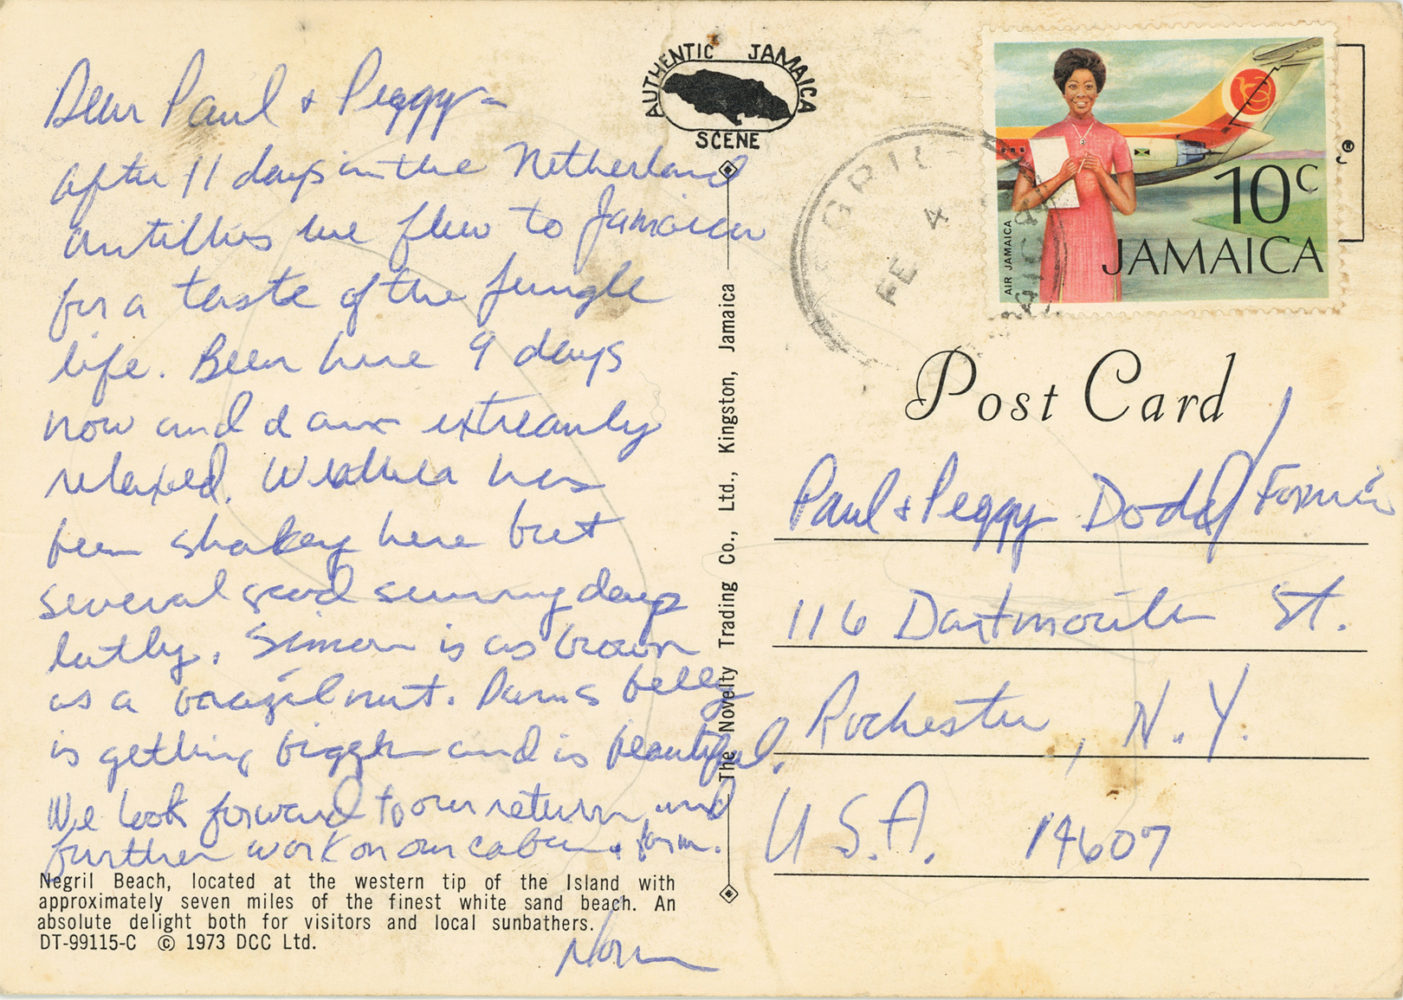 Dear Paul & Peggy-
after 11 days in the Netherland
Antillies we flew to Jamaica
for a taste of the Jungle
life. Been here 9 days
now and am extreamly
relaxed. Weather has
been shakey here but
several good sunny days
lately. Simon is as brown
as a brazil nut. belly
is getting bigger and is beautiful.
We look forward to our return and
further work on our cabin & farm.
Norm
Negril Beach, located at the western tip of the Island with
approximately seven miles of the finest white sand beach. An
absolute delight both for visitors and local sunbathers.
DT-99115-C © 1973 DCC Ltd.
AUTHENTIC JAMAICA
SCENE
The Novelty Trading Co., Ltd., Kingston, Jamaica
FE 4
AIR JAMAICA
10c
JAMAICA
®
Post Card
Paul & Peggy Dodd/
116 Dartmouth St.
Rochester, N.Y.
U.S.A. 14607